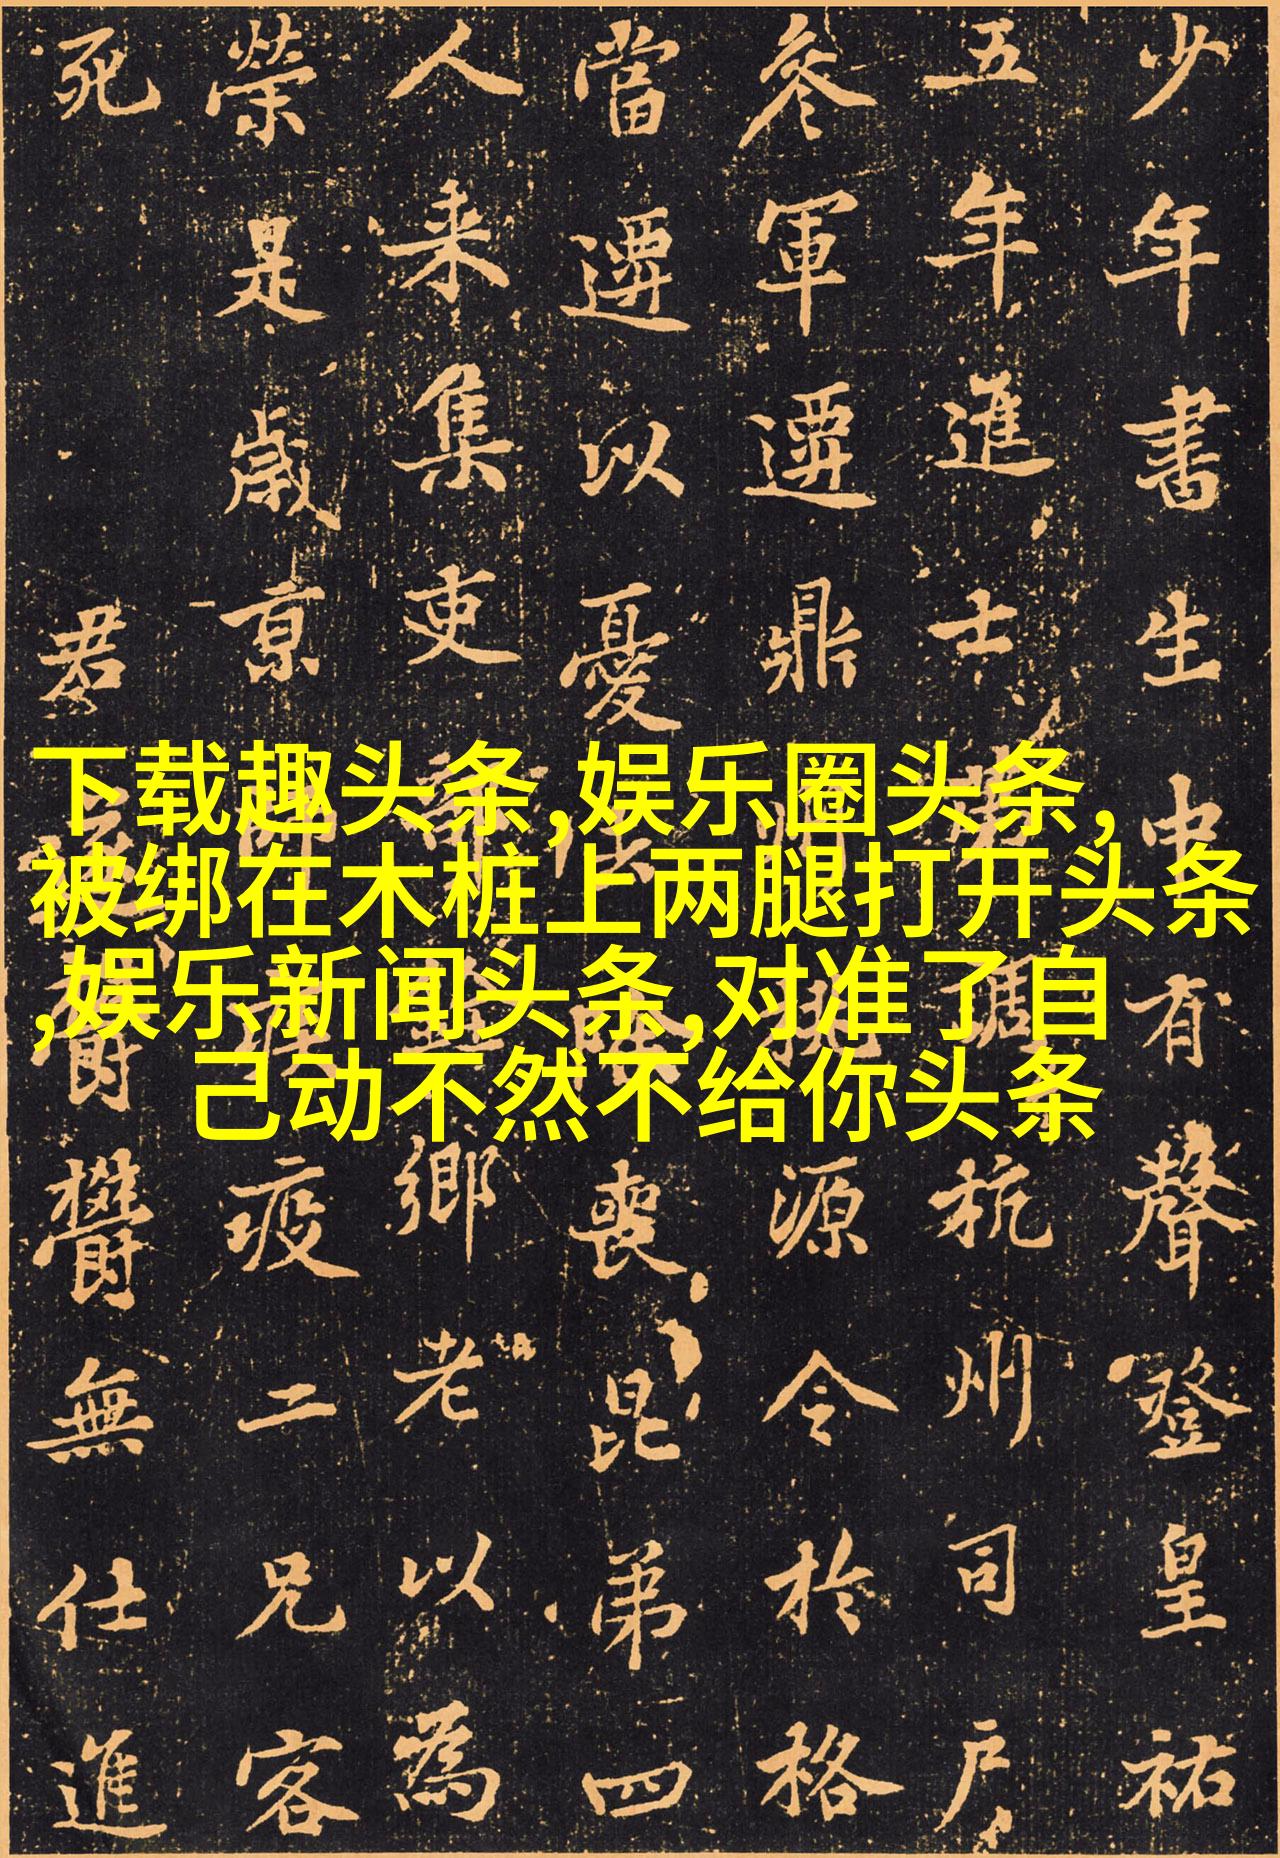 少年書生中有聲登皇祐
五年進士杭州司户
叅軍遷鼎州桃源令於格
當遷以憂喪昆弟四
人来集吏鄉老以為
榮是歳京師疫二兄客
死君欝無仕進
下载趣头条,娱乐圈头条,
被绑在木桩上两腿打开头条
,娱乐新闻头条,对准了自
己动不然不给你头条